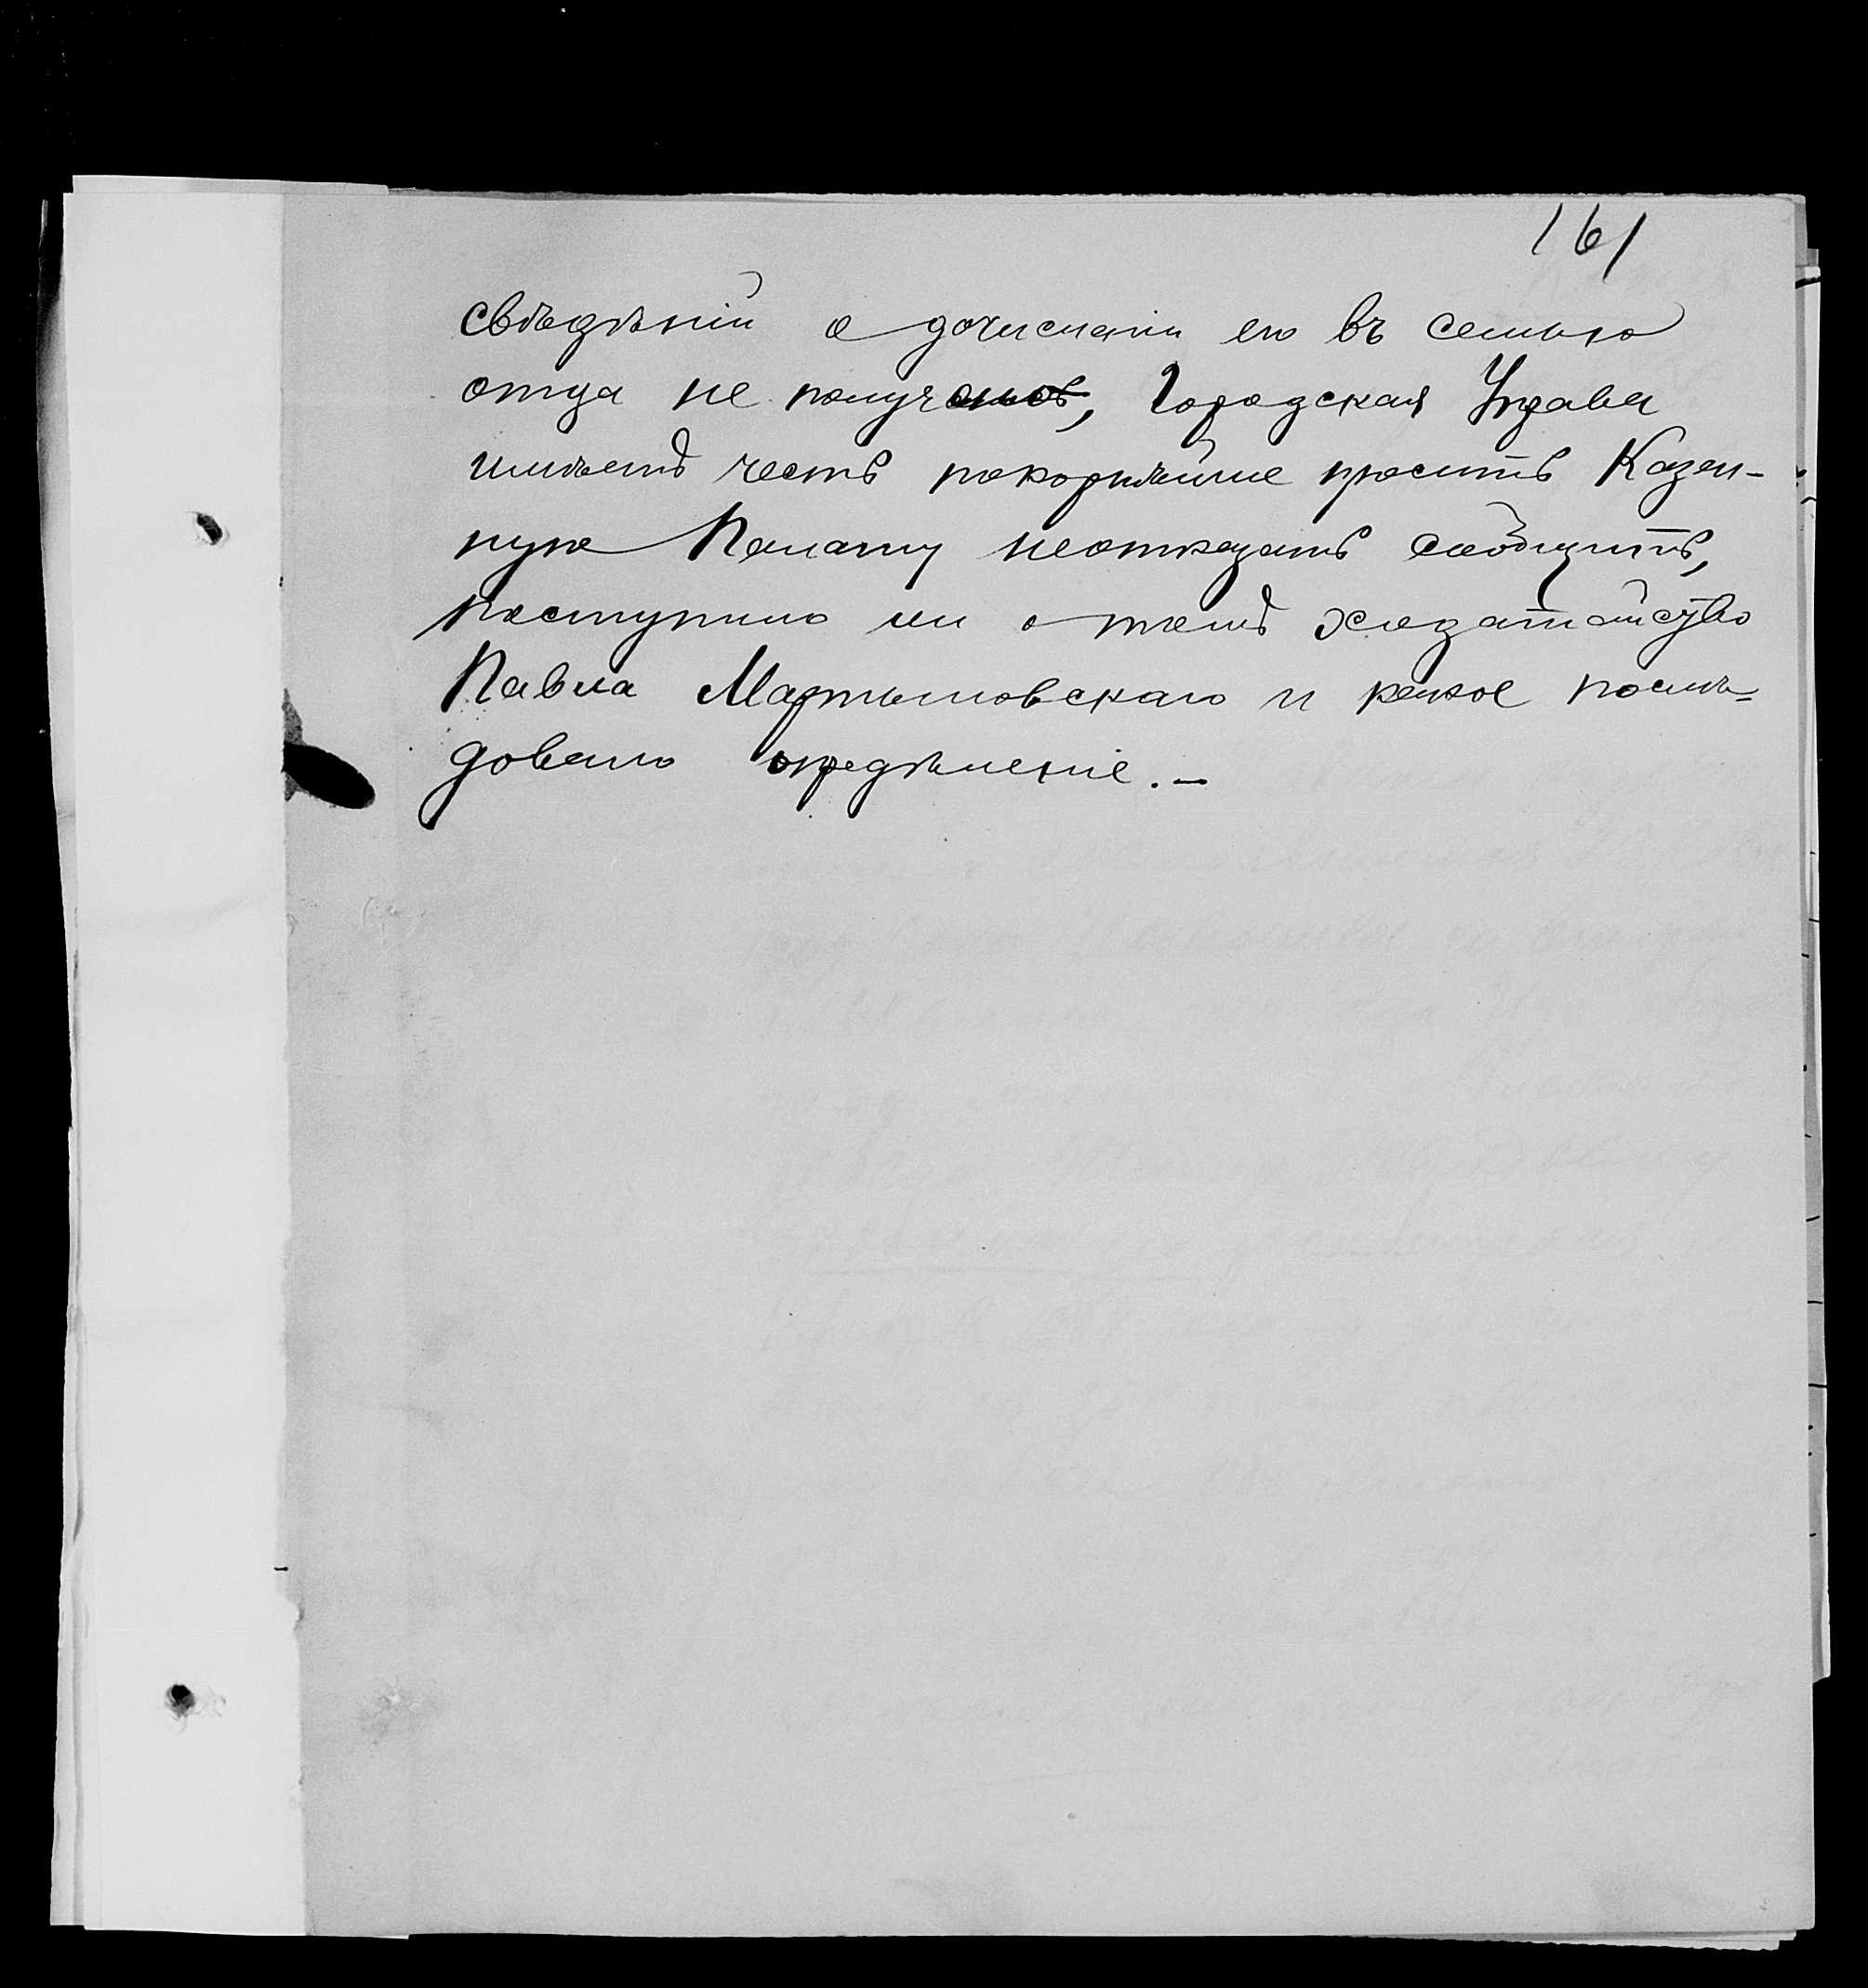 161
свѣдѣній о дочислении его въ семью
отца не получено, Городская Управа
имѣетъ честь покорнѣйше просить Казен-
ную Палату неотказать сообщить,
поступило ли о томъ ходатайство
Павла Мартыновскаго и какое послѣ-
довало опредѣленіе. —